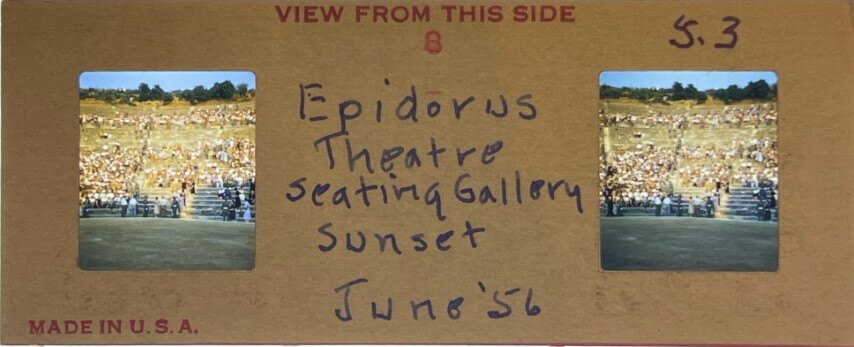 VIEW FROM THIS SIDE
8
5.3
Epidorus
Theatre
seating Gallery
Sunset
June '56
MADE IN U.S.A.